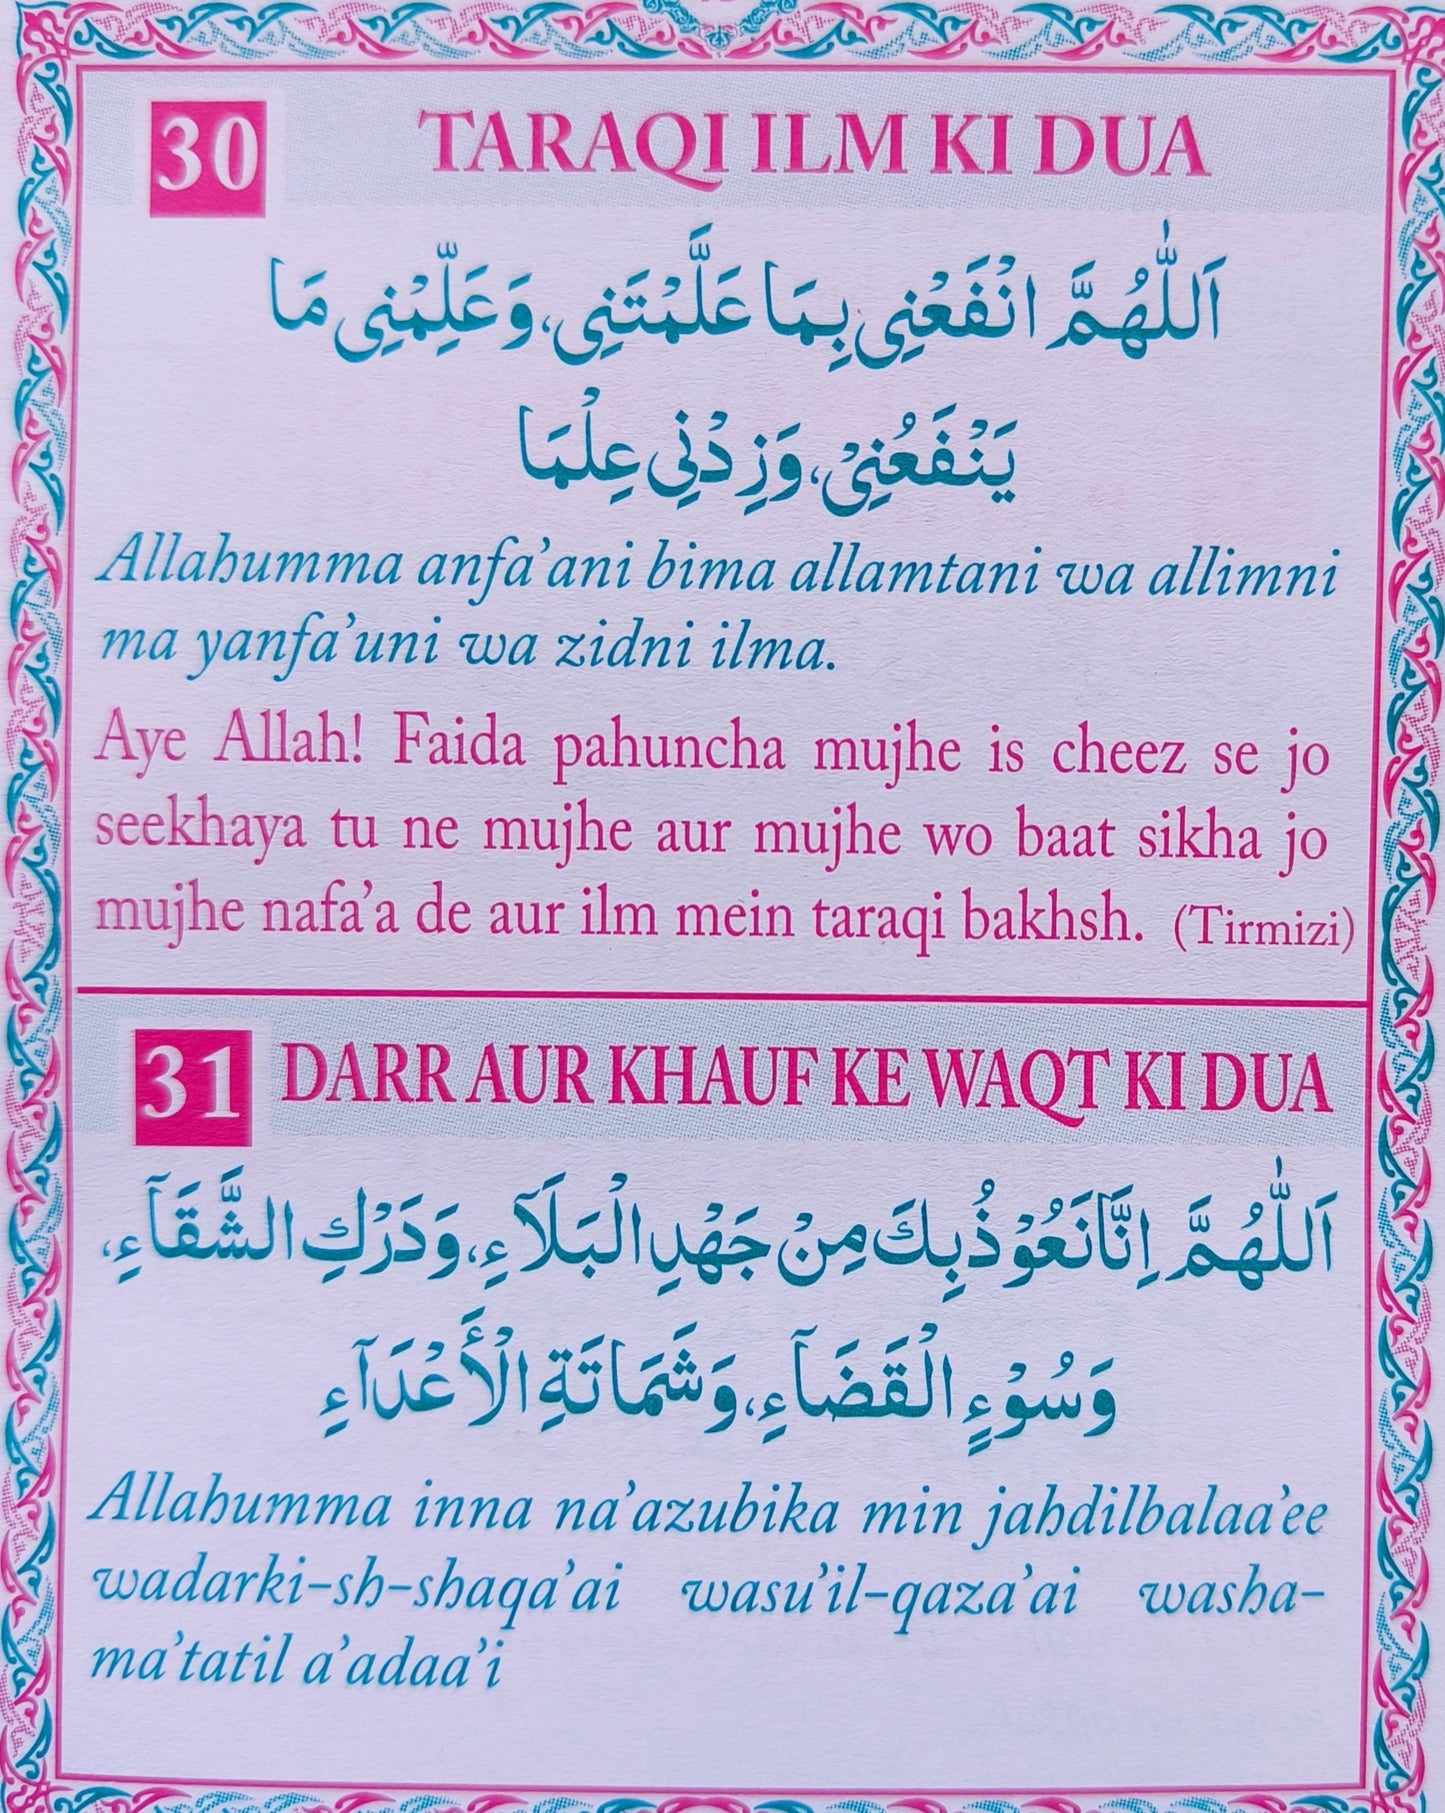 30
TARAQI ILM KI DUA
اَللّٰهُمَّ انْفَعْنِي بِمَا عَلَّمْتَنِي، وَعَلِّمْنِي مَا
يَنْفَعُنِيْ، وَزِدْنِي عِلْمَا
Allahumma anfa’ani bima allamtani wa allimni
ma yanfa’uni wa zidni ilma.
Aye Allah! Faida pahuncha mujhe is cheez se jo
seekhaya tu ne mujhe aur mujhe wo baat sikha jo
mujhe nafa’a de aur ilm mein taraqi bakhsh. (Tirmizi)
31
DARR AUR KHAUF KE WAQT KI DUA
اَللّٰهُمَّ اِنَّانَعُوْذُبِكَ مِنْ جَهْدِ الْبَلَآءِ، وَدَرْكِ الشَّقَآءِ،
وَسُوْءٍ الْقَضَآءِ، وَشَمَاتَةِ الْأَعْدَآءِ
Allahumma inna na’azubika min jahdilbalaa’ee
wadarki-sh-shaqa’ai wasu’il-qaza’ai washa-
ma’tatil a’adaa’i